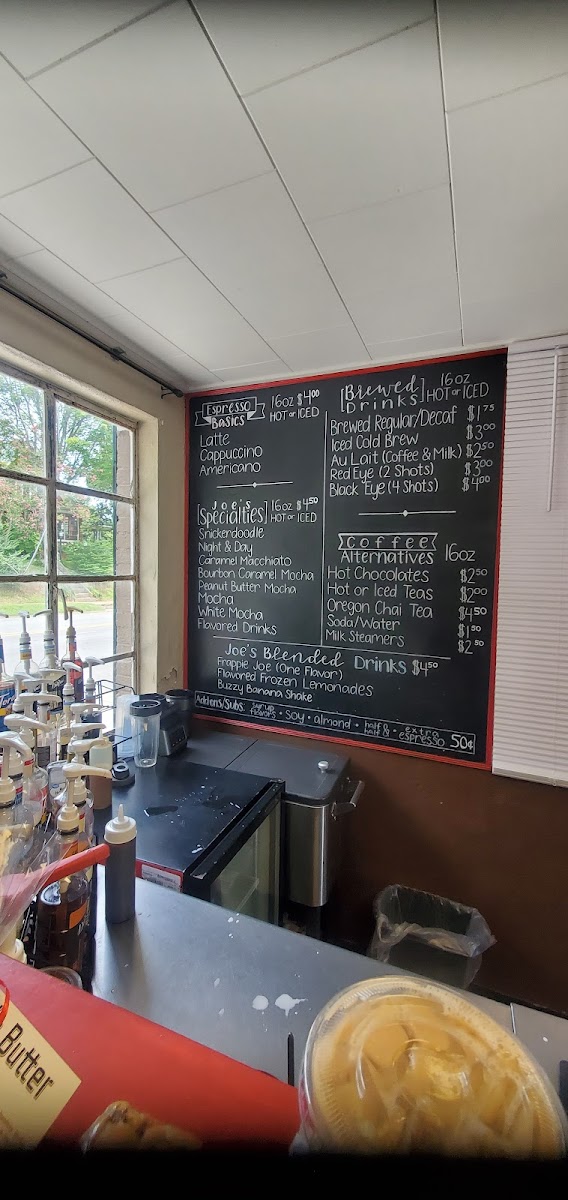 Espresso Basics
16oz $4.00
HOT or ICED
Latte
Cappuccino
Americano
Joe's
Specialties
16oz $4.50
HOT or ICED
Snickerdoodle
Night & Day
Caramel Macchiato
Bourbon Caramel Mocha
Peanut Butter Mocha
Mocha
White Mocha
Flavored Drinks
Brewed
Drinks
16oz
HOT or ICED
Brewed Regular/Decaf $1.75
Iced Cold Brew $3.00
Au Lait (Coffee & Milk) $2.50
Red Eye (2 Shots) $3.00
Black Eye (4 Shots) $4.00
Coffee
Alternatives 16oz
Hot Chocolates $2.50
Hot or Iced Teas $2.00
Oregon Chai Tea $4.50
Soda/Water $1.50
Milk Steamers $2.50
Joe's Blended Drinks $4.50
Frappie Joe (One Flavor)
Flavored Frozen Lemonades
Buzzy Banana Shake
Addons/Subs: syrup flavors • soy • almond • half & half • extra espresso 50¢
Butter